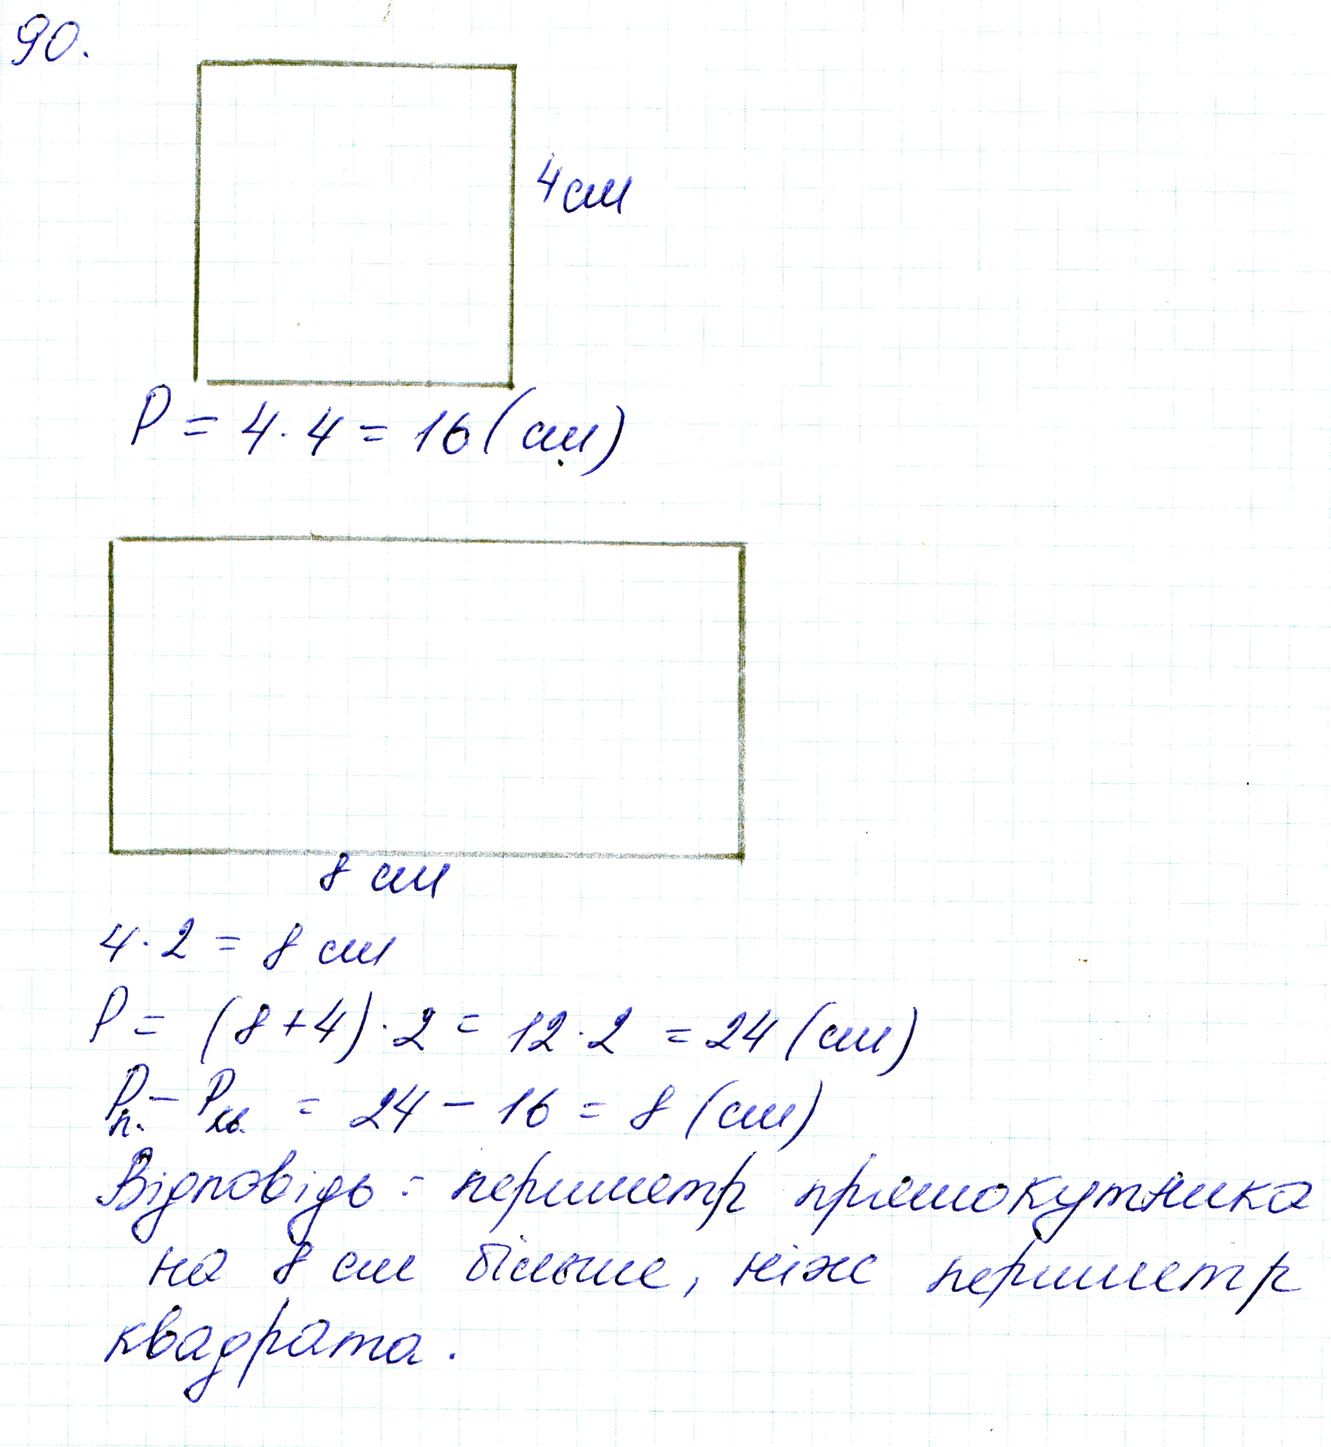 90.
4 см
P = 4 · 4 = 16 (см)
8 см
4 · 2 = 8 см
P = (8 + 4) · 2 = 12 · 2 = 24 (см)
Pп. – Pкв. = 24 – 16 = 8 (см)
Відповідь: периметр прямокутника
на 8 см більше, ніж периметр
квадрата.